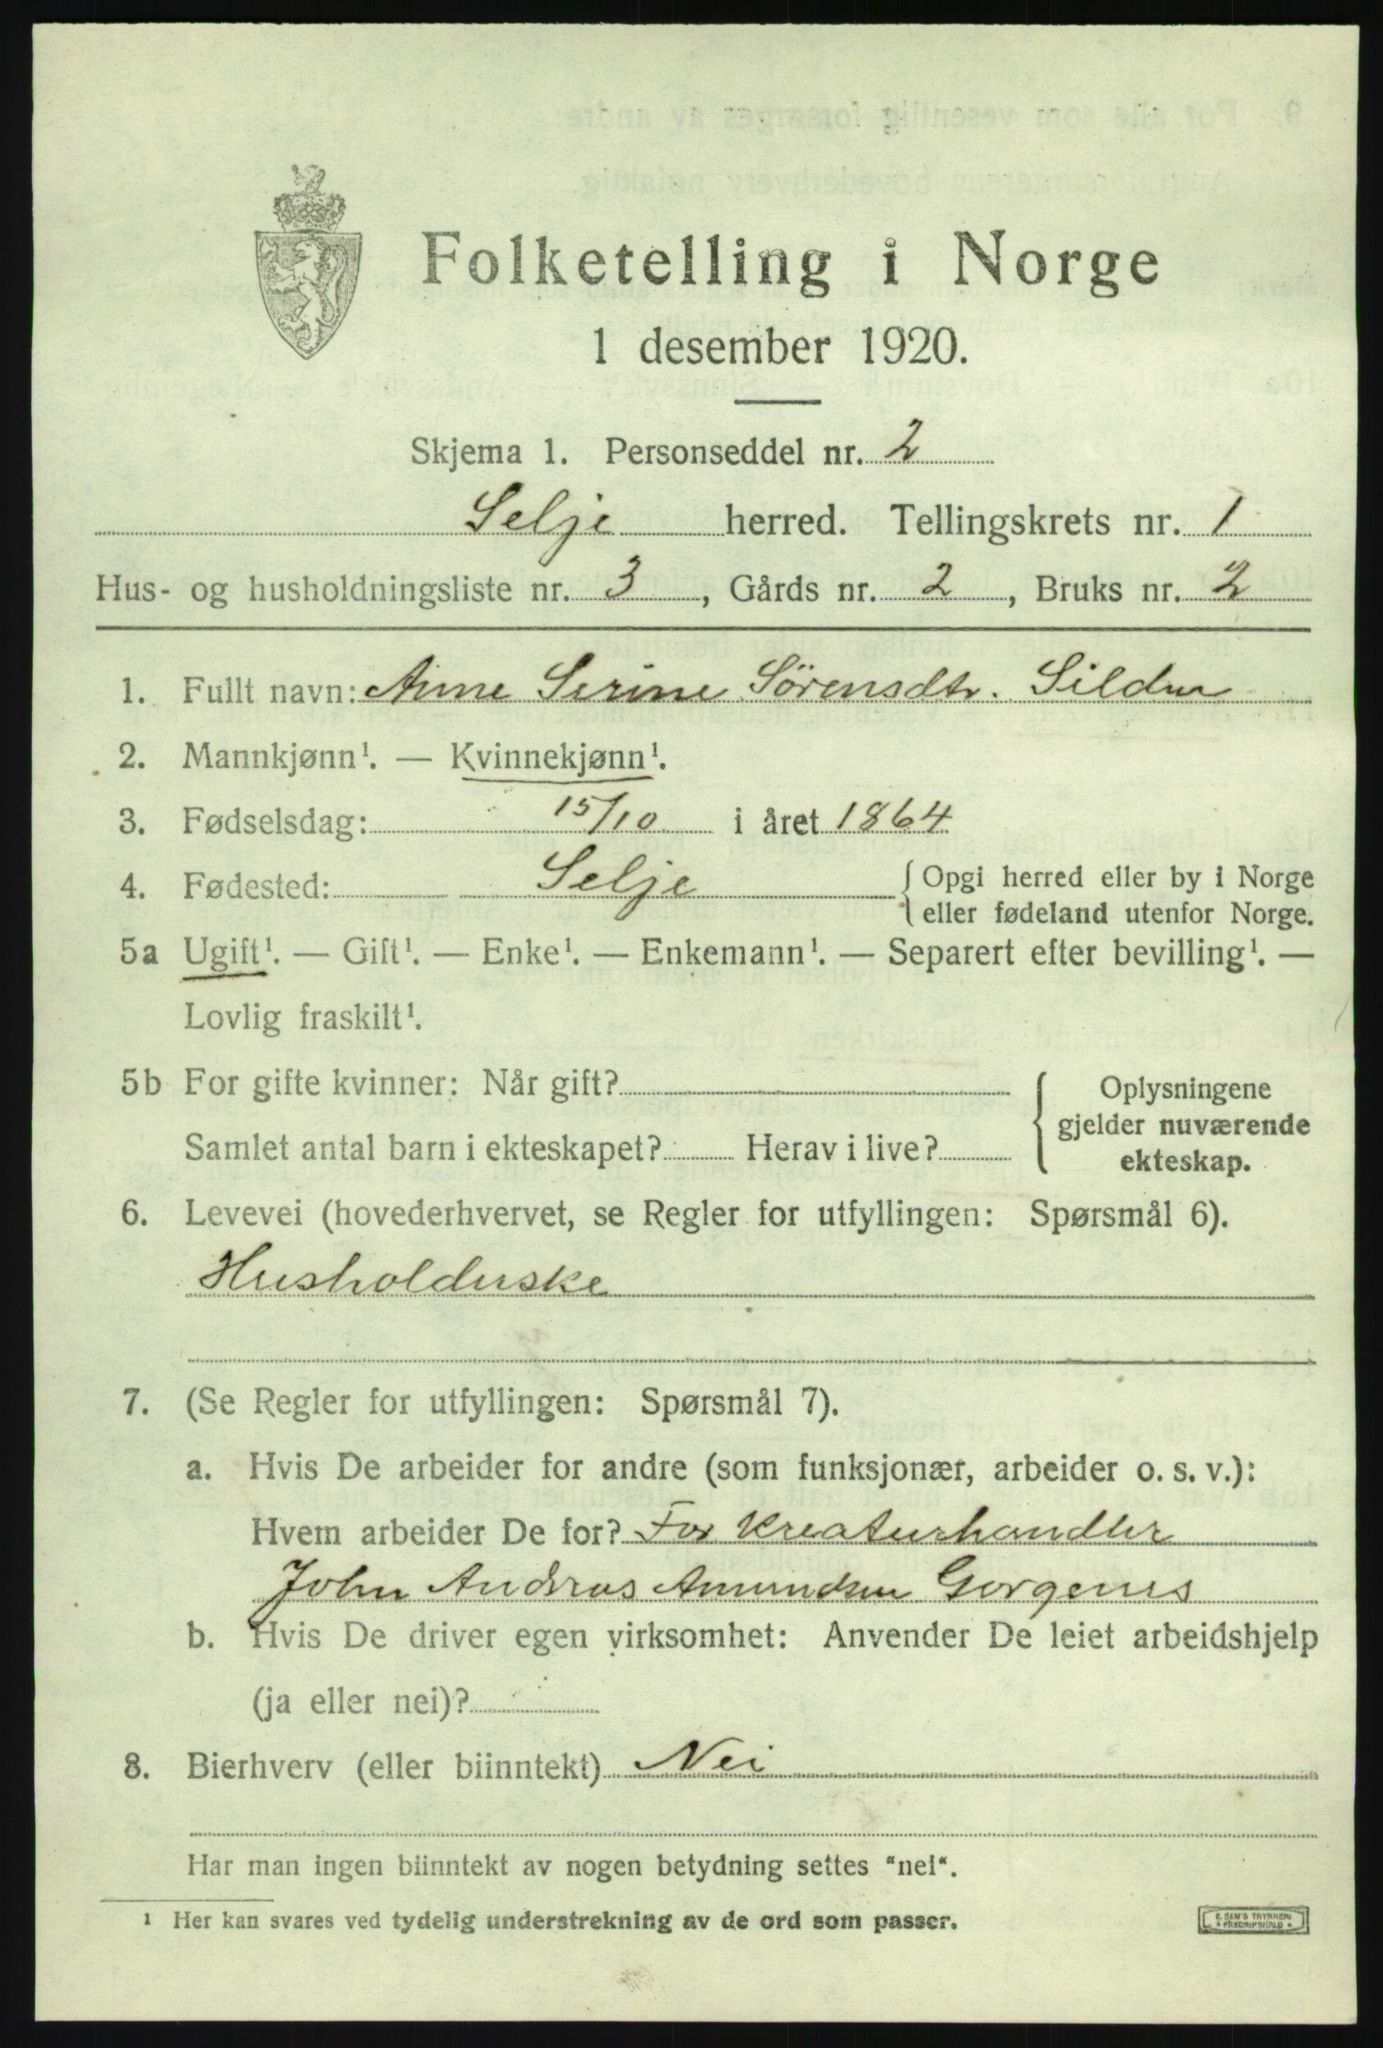 Folketelling i Norge
1 desember 1920.
Skjema 1. Personseddel nr. 2
Selje herred. Tellingskrets nr. 1
Hus- og husholdningsliste nr. 3, Gårds nr. 2, Bruks nr. 2
1. Fullt navn: Anne Serine Sörensdtr. Silden
2. Mannkjønn¹. — Kvinnekjønn¹.
3. Fødselsdag: 15/10 i året 1864
4. Fødested: Selje { Opgi herred eller by i Norge
eller fødeland utenfor Norge.
5a Ugift¹. — Gift¹. — Enke¹. — Enkemann¹. — Separert efter bevilling¹. —
Lovlig fraskilt¹.
5b For gifte kvinner: Når gift?
Samlet antal barn i ekteskapet? Herav i live?
{ Oplysningene
gjelder nuværende
ekteskap.
6. Levevei (hovederhvervet, se Regler for utfyllingen: Spørsmål 6).
Husholderske
7. (Se Regler for utfyllingen: Spørsmål 7).
a. Hvis De arbeider for andre (som funksjonær, arbeider o. s. v.):
Hvem arbeider De for? For Kreaturhandler
John Andreas Amundsen
b. Hvis De driver egen virksomhet: Anvender De leiet arbeidshjelp
(ja eller nei)?
8. Bierhverv (eller biinntekt) Nei
Har man ingen biinntekt av nogen betydning settes "nei".
¹ Her kan svares ved tydelig understrekning av de ord som passer.
E. SEM'S TRYKKERI
* FREDRIKSHALD *